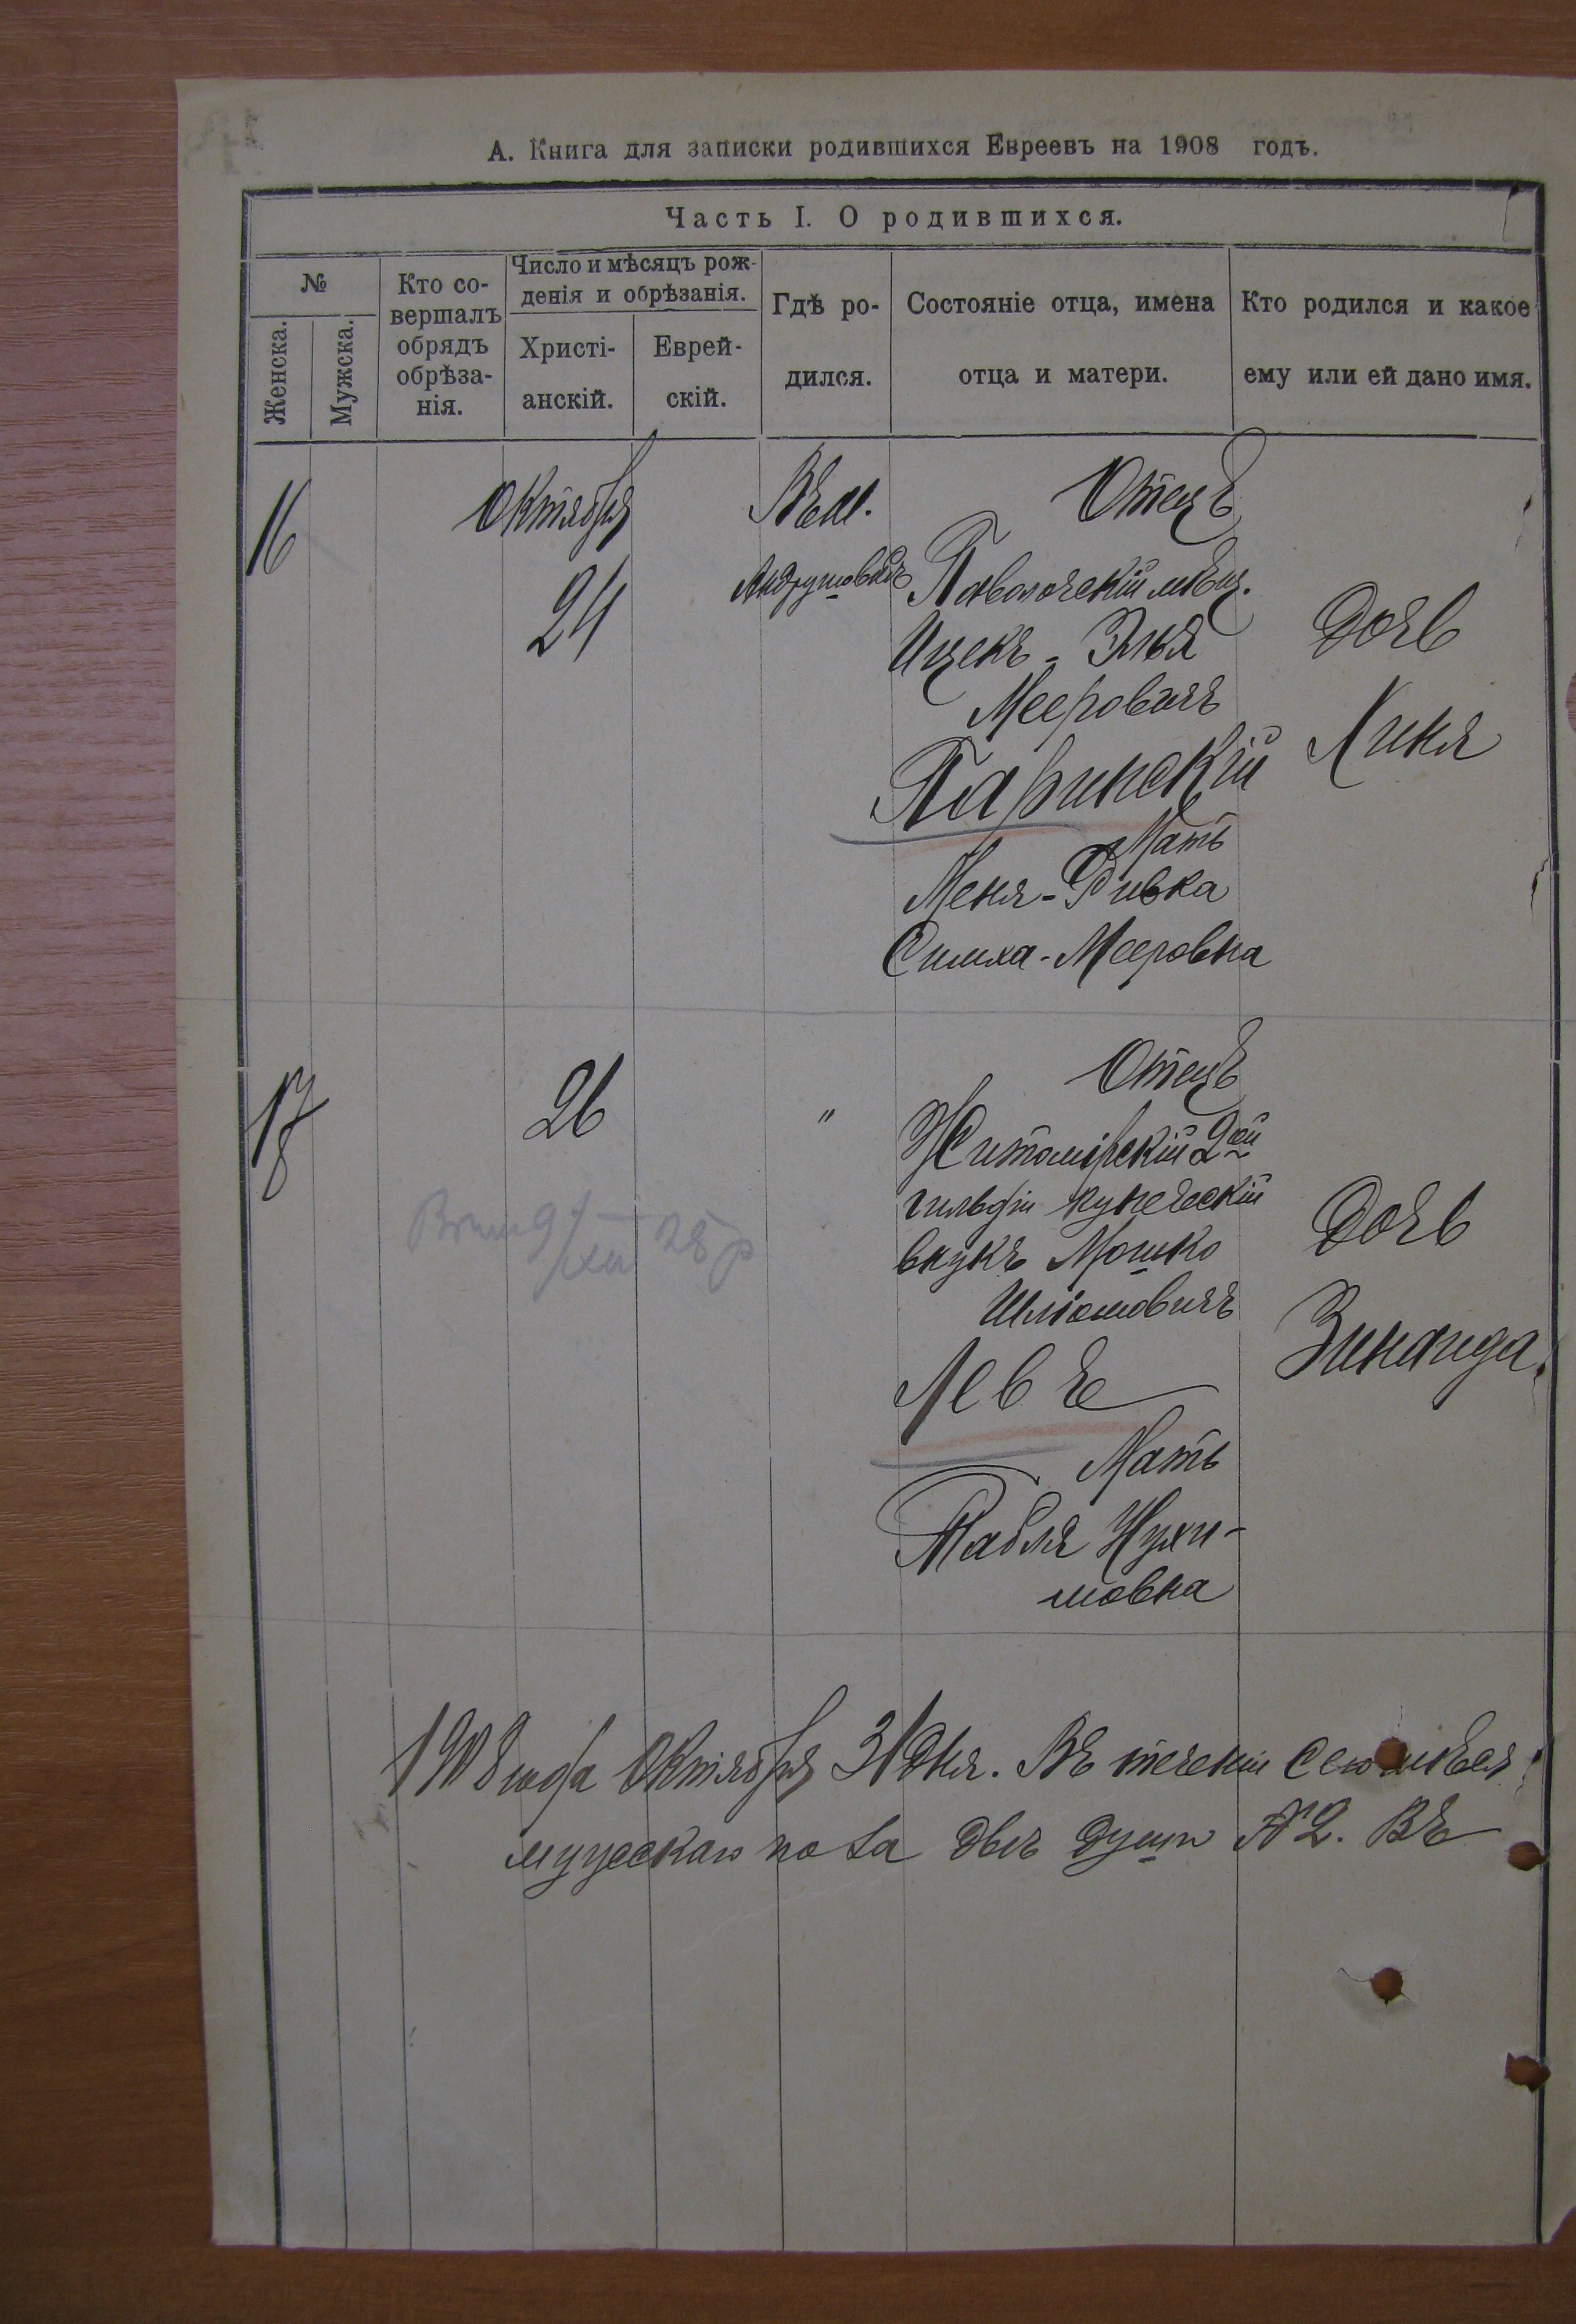 А. Книга для записки родившихся Евреевъ на 1908 годъ.
Часть I. О родившихся.
№
Женска.
Мужска.
Кто со-
вершалъ
обрядъ
обрѣза-
нія.
Число и мѣсяцъ рож-
денія и обрѣзанія.
Христі-
анскій.
Еврей-
скій.
Гдѣ ро-
дился.
Состояніе отца, имена
отца и матери.
Кто родился и какое
ему или ей дано имя.
16
Октября
24
Въ м.
Андрушовкѣ
Отецъ
Паволочскій мѣщ.
Ицекъ-Элья
Мееровичъ
Паринскій
Мать
Меня-Ривка
Симха-Мееровна
Дочь
Хиня
17
26
"
Отецъ
Житомірскій 2ой
гильдіи купеческій
внукъ Мошко
Шліомовичъ
Левъ
Мать
Табля Нухи-
мовна
Дочь
Зинаида
1908 года Октября 31 дня. Въ теченіи сего мѣсяца
мужескаго пола двѣ души №2. Въ